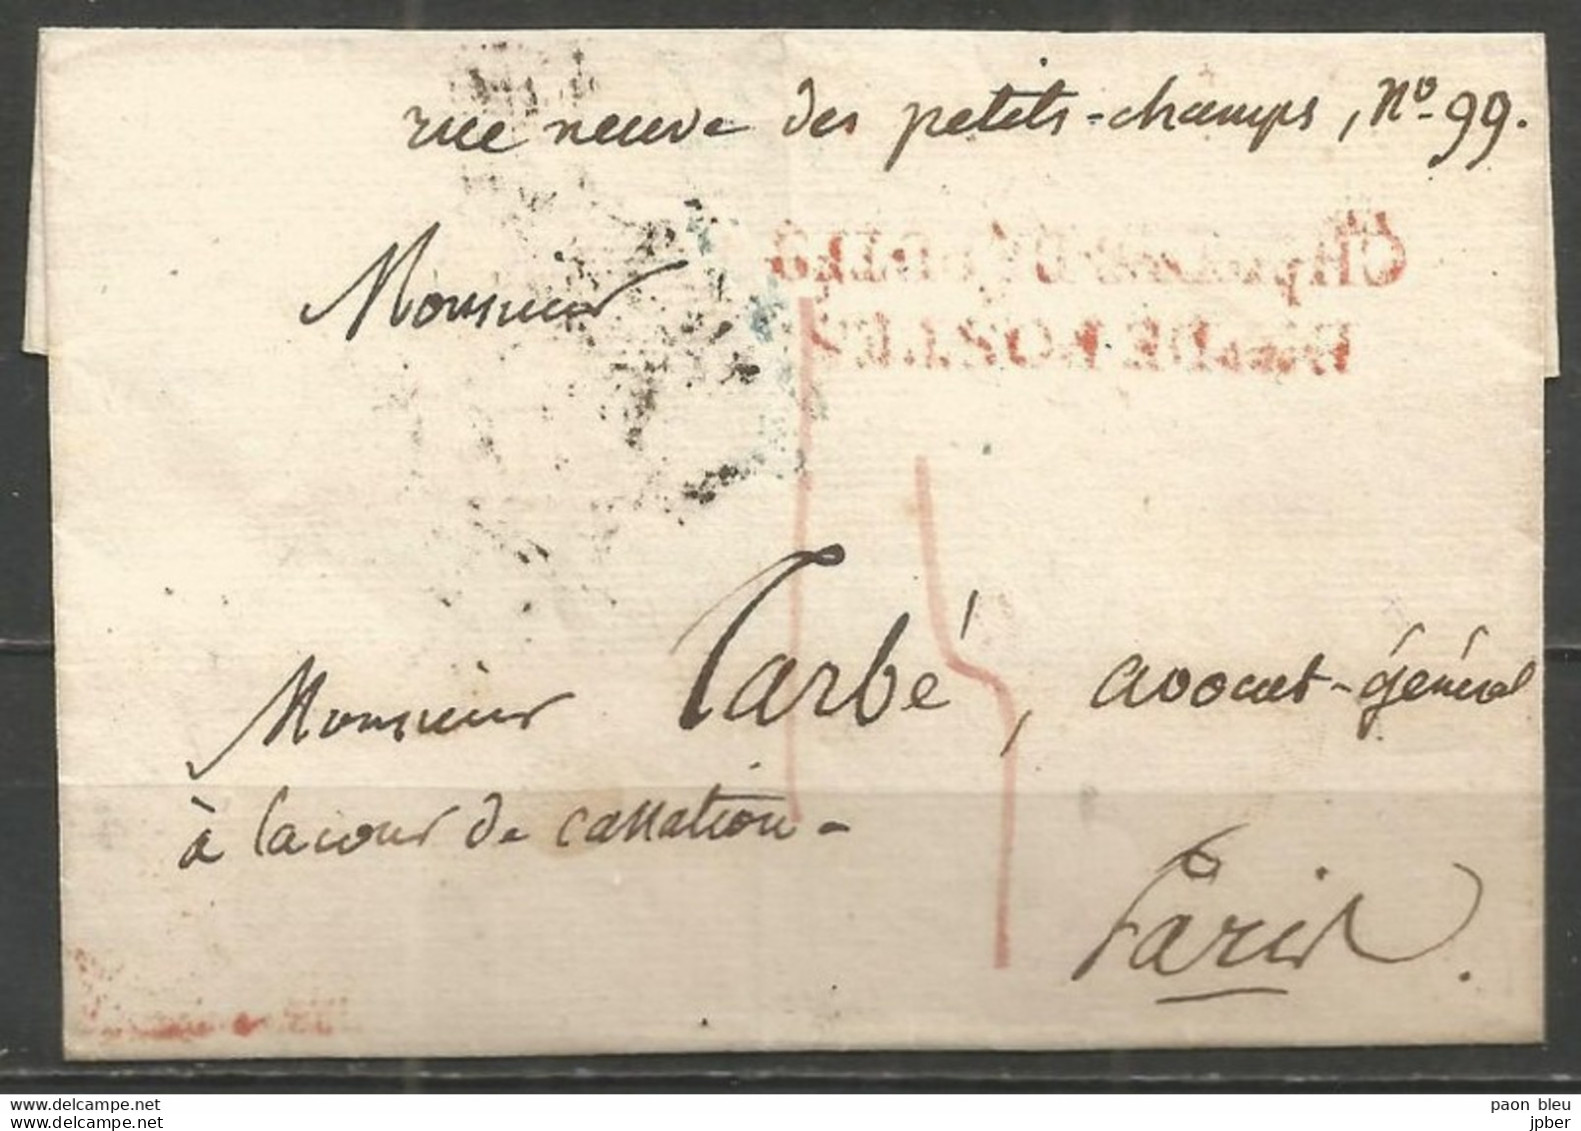 rue neuve des petits-champs, N° 99.
Monsieur
Monsieur Tarbé, avocat-général
à la cour de cassation -
Paris.
www.delcampe.net
paon bleu
www.delcampe.net
jpber